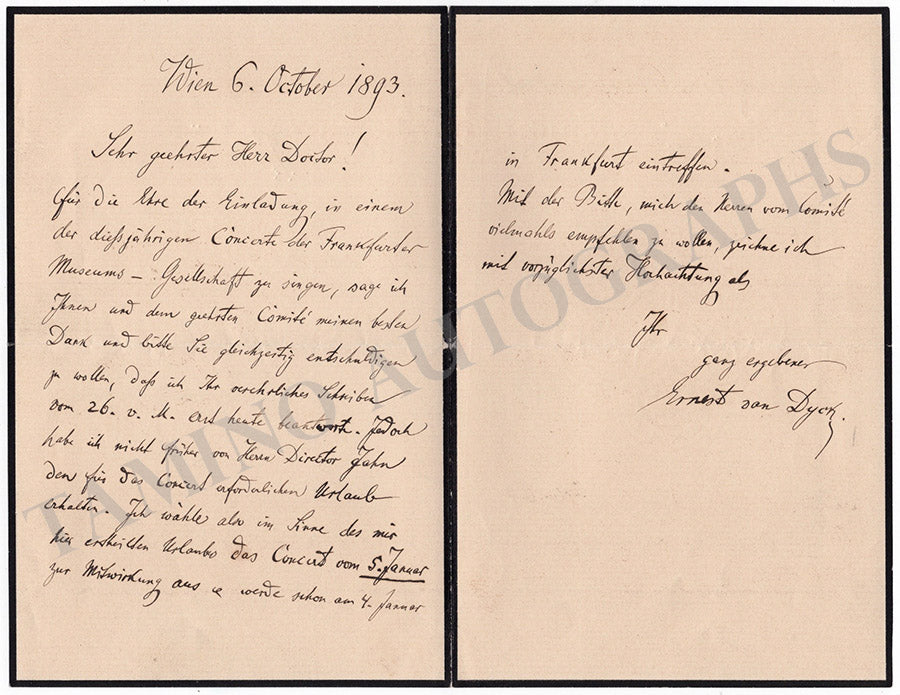 Wien 6. October 1893.
Sehr geehrter Herr Doctor!
für die Ehre der Einladung, in einem
der dießjährigen Concerte der Frankfurter
Museums - Gesellschaft zu singen, sage ich
Ihnen und dem geehrten Comité meinen besten
Dank und bitte Sie gleichzeitig entschuldigen
zu wollen, daß ich Ihr verehrliches Schreiben
vom 26. v. M. erst heute beantworte. Jedoch
habe ich nicht früher von Herrn Director Jahn
den für das Concert erforderlichen Urlaub
erhalten. Ich wähle also im Sinne des mir
hier ertheilten Urlaubs das Concert vom 5. Januar
zur Mitwirkung aus u werde schon am 4. Januar
in Frankfurt eintreffen.
Mit der Bitte, mich den Herren vom Comité
vielmahls empfehlen zu wollen, zeichne ich
mit vorzüglichster Hochachtung als
Ihr
ganz ergebener
Ernest van Dyck.
TAMINO AUTOGRAPHS